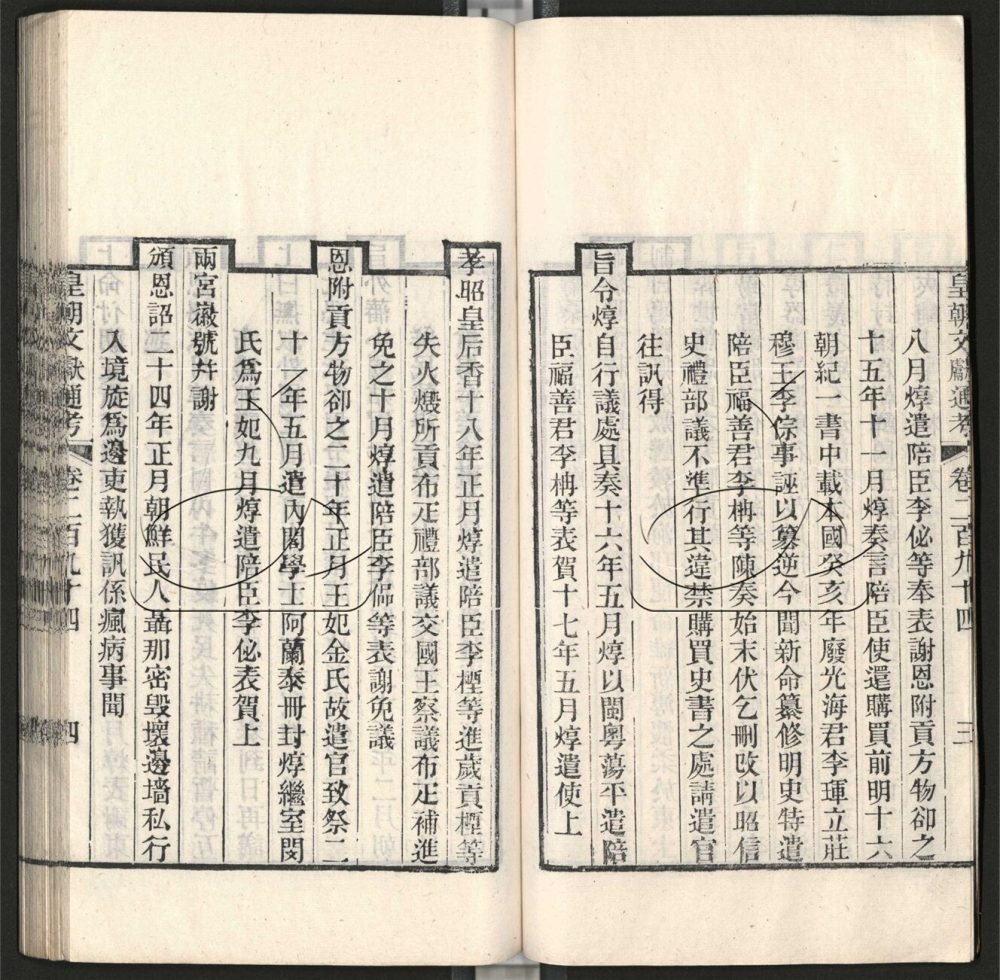 皇朝文獻通考 卷二百九十四 三
八月焞遣陪臣李佖等奉表謝恩附貢方物卻之
十五年十一月焞奏言陪臣使還購買前明十六
朝紀一書中載本國癸亥年廢光海君李琿立莊
穆王李倧事誣以篡逆今聞新命纂修明史特遣
陪臣福善君李柟等陳奏始末伏乞刪改以昭信
史禮部議不準行其違禁購買史書之處請遣官
往訊得
旨令焞自行議處具奏十六年五月焞以閩粵蕩平遣陪
臣福善君李柟等表賀十七年五月焞遣使上
孝昭皇后香十八年正月焞遣陪臣李㮒等進歲貢㮒等
失火燬所貢布疋禮部議交國王察議布疋補進
免之十月焞遣陪臣李偘等表謝免議
恩附貢方物卻之二十年正月王妃金氏故遣官致祭二
十一年五月遣內閣學士阿蘭泰冊封焞繼室閔
氏爲王妃九月焞遣陪臣李佖表賀上
兩宮徽號幷謝
頒恩詔二十四年正月朝鮮民人聶那密毀壞邊墻私行
入境旋爲邊吏執獲訊係瘋病事聞
皇朝文獻通考 卷二百九十四 四